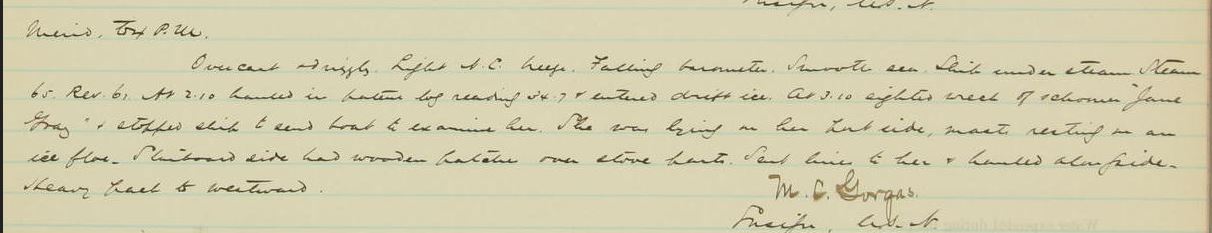 Ensign, U.S.N.
Merid. to 4 P.M.
Overcast & drizzly. Light N.E. breeze. Falling barometer. Smooth sea. Ship under steam. Steam
65. Rev. 61. At 2.10 hauled in patent log reading 34.7 & entered drift ice. At 3.10 sighted wreck of schooner "Jane
Gray" & stopped ship to send boat to examine her. She was lying on her port side, masts resting on an
ice floe. Starboard side had wooden patches over stove parts. Sent lines to her & hauled alongside.
Heavy pack to westward.
M. C. Gorgas.
Ensign, U.S.N.